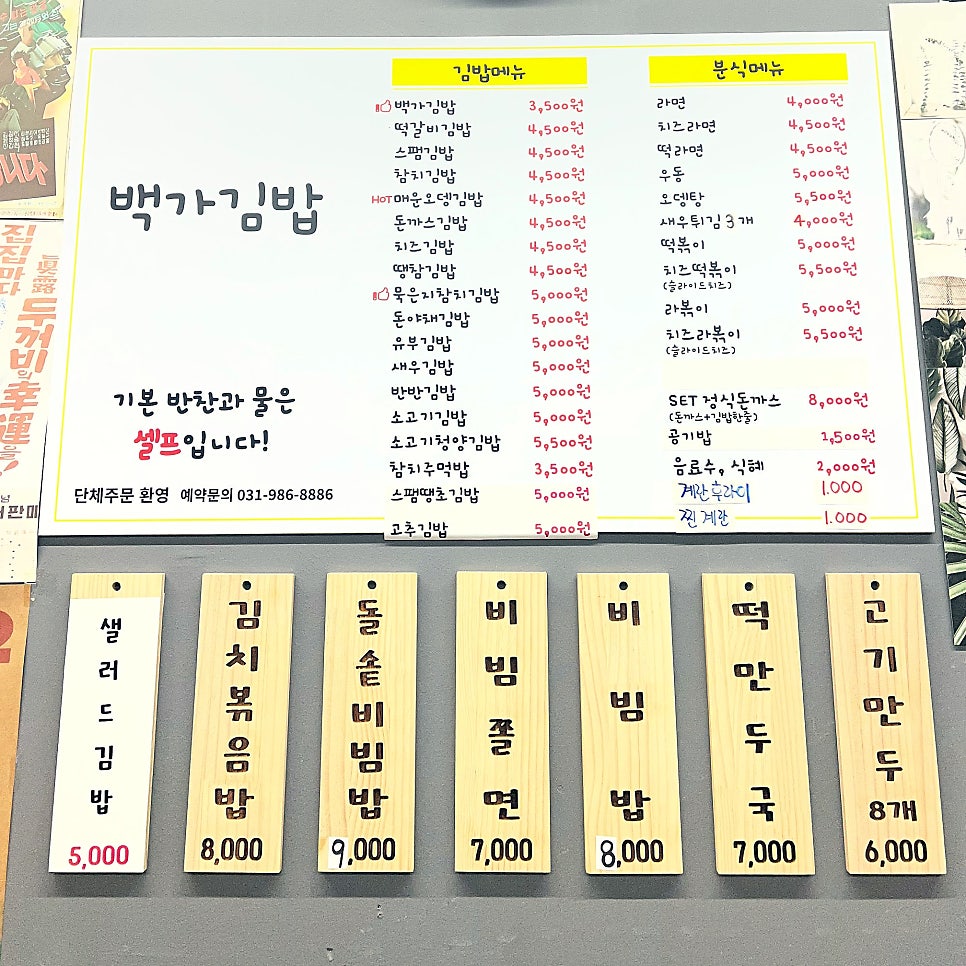 백가김밥
기본 반찬과 물은
셀프입니다!
단체주문 환영 예약문의 031-986-8886
김밥메뉴
백가김밥 3,500원
떡갈비김밥 4,500원
스팸김밥 4,500원
참치김밥 4,500원
HOT 매운오뎅김밥 4,500원
돈까스김밥 4,500원
치즈김밥 4,500원
땡참김밥 4,500원
묵은지참치김밥 5,000원
돈야채김밥 5,000원
유부김밥 5,000원
새우김밥 5,000원
반반김밥 5,000원
소고기김밥 5,000원
소고기청양김밥 5,500원
참치주먹밥 3,500원
스팸땡초김밥 5,000원
고추김밥 5,000원
분식메뉴
라면 4,000원
치즈라면 4,500원
떡라면 4,500원
우동 5,000원
오뎅탕 5,500원
새우튀김3개 4,000원
떡볶이 5,000원
치즈떡볶이 5,500원
(슬라이드치즈)
라볶이 5,000원
치즈라볶이 5,500원
(슬라이드치즈)
SET 정식돈까스 8,000원
(돈까스+김밥한줄)
공기밥 1,500원
음료수, 식혜 2,000원
계란후라이 1.000
찐계란 1.000
샐러드김밥
5,000
김치볶음밥
8,000
돌솥비빔밥
9,000
비빔쫄면
7,000
비빔밥
8,000
떡만두국
7,000
고기만두
8개
6,000
집집마다
두꺼비의
幸運을!